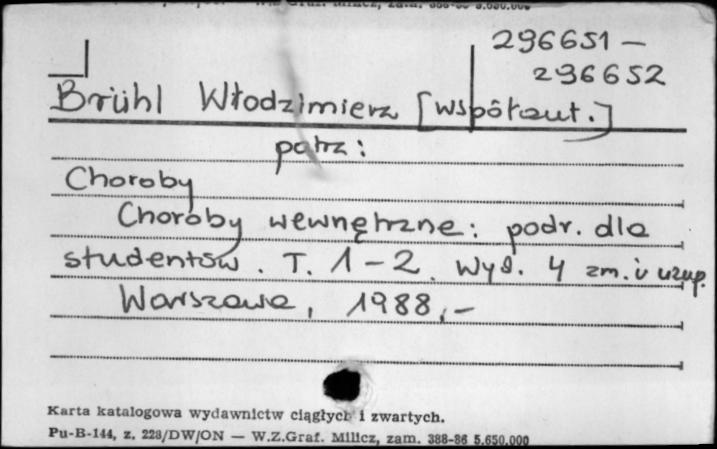 W.Z. Graf. Milicz, zam. 388-86 5.650.000
296651 –
296652
Brühl Włodzimierz [współaut.]
patrz:
Choroby
Choroby wewnętrzne: podr. dla
studentów. T. 1-2. Wyd. 4 zm. i uzup.
Warszawa, 1988,-
Karta katalogowa wydawnictw ciągłych i zwartych.
Pu-B-144, z. 228/DW/ON — W.Z.Graf. Milicz, zam. 388-86 5.650.000